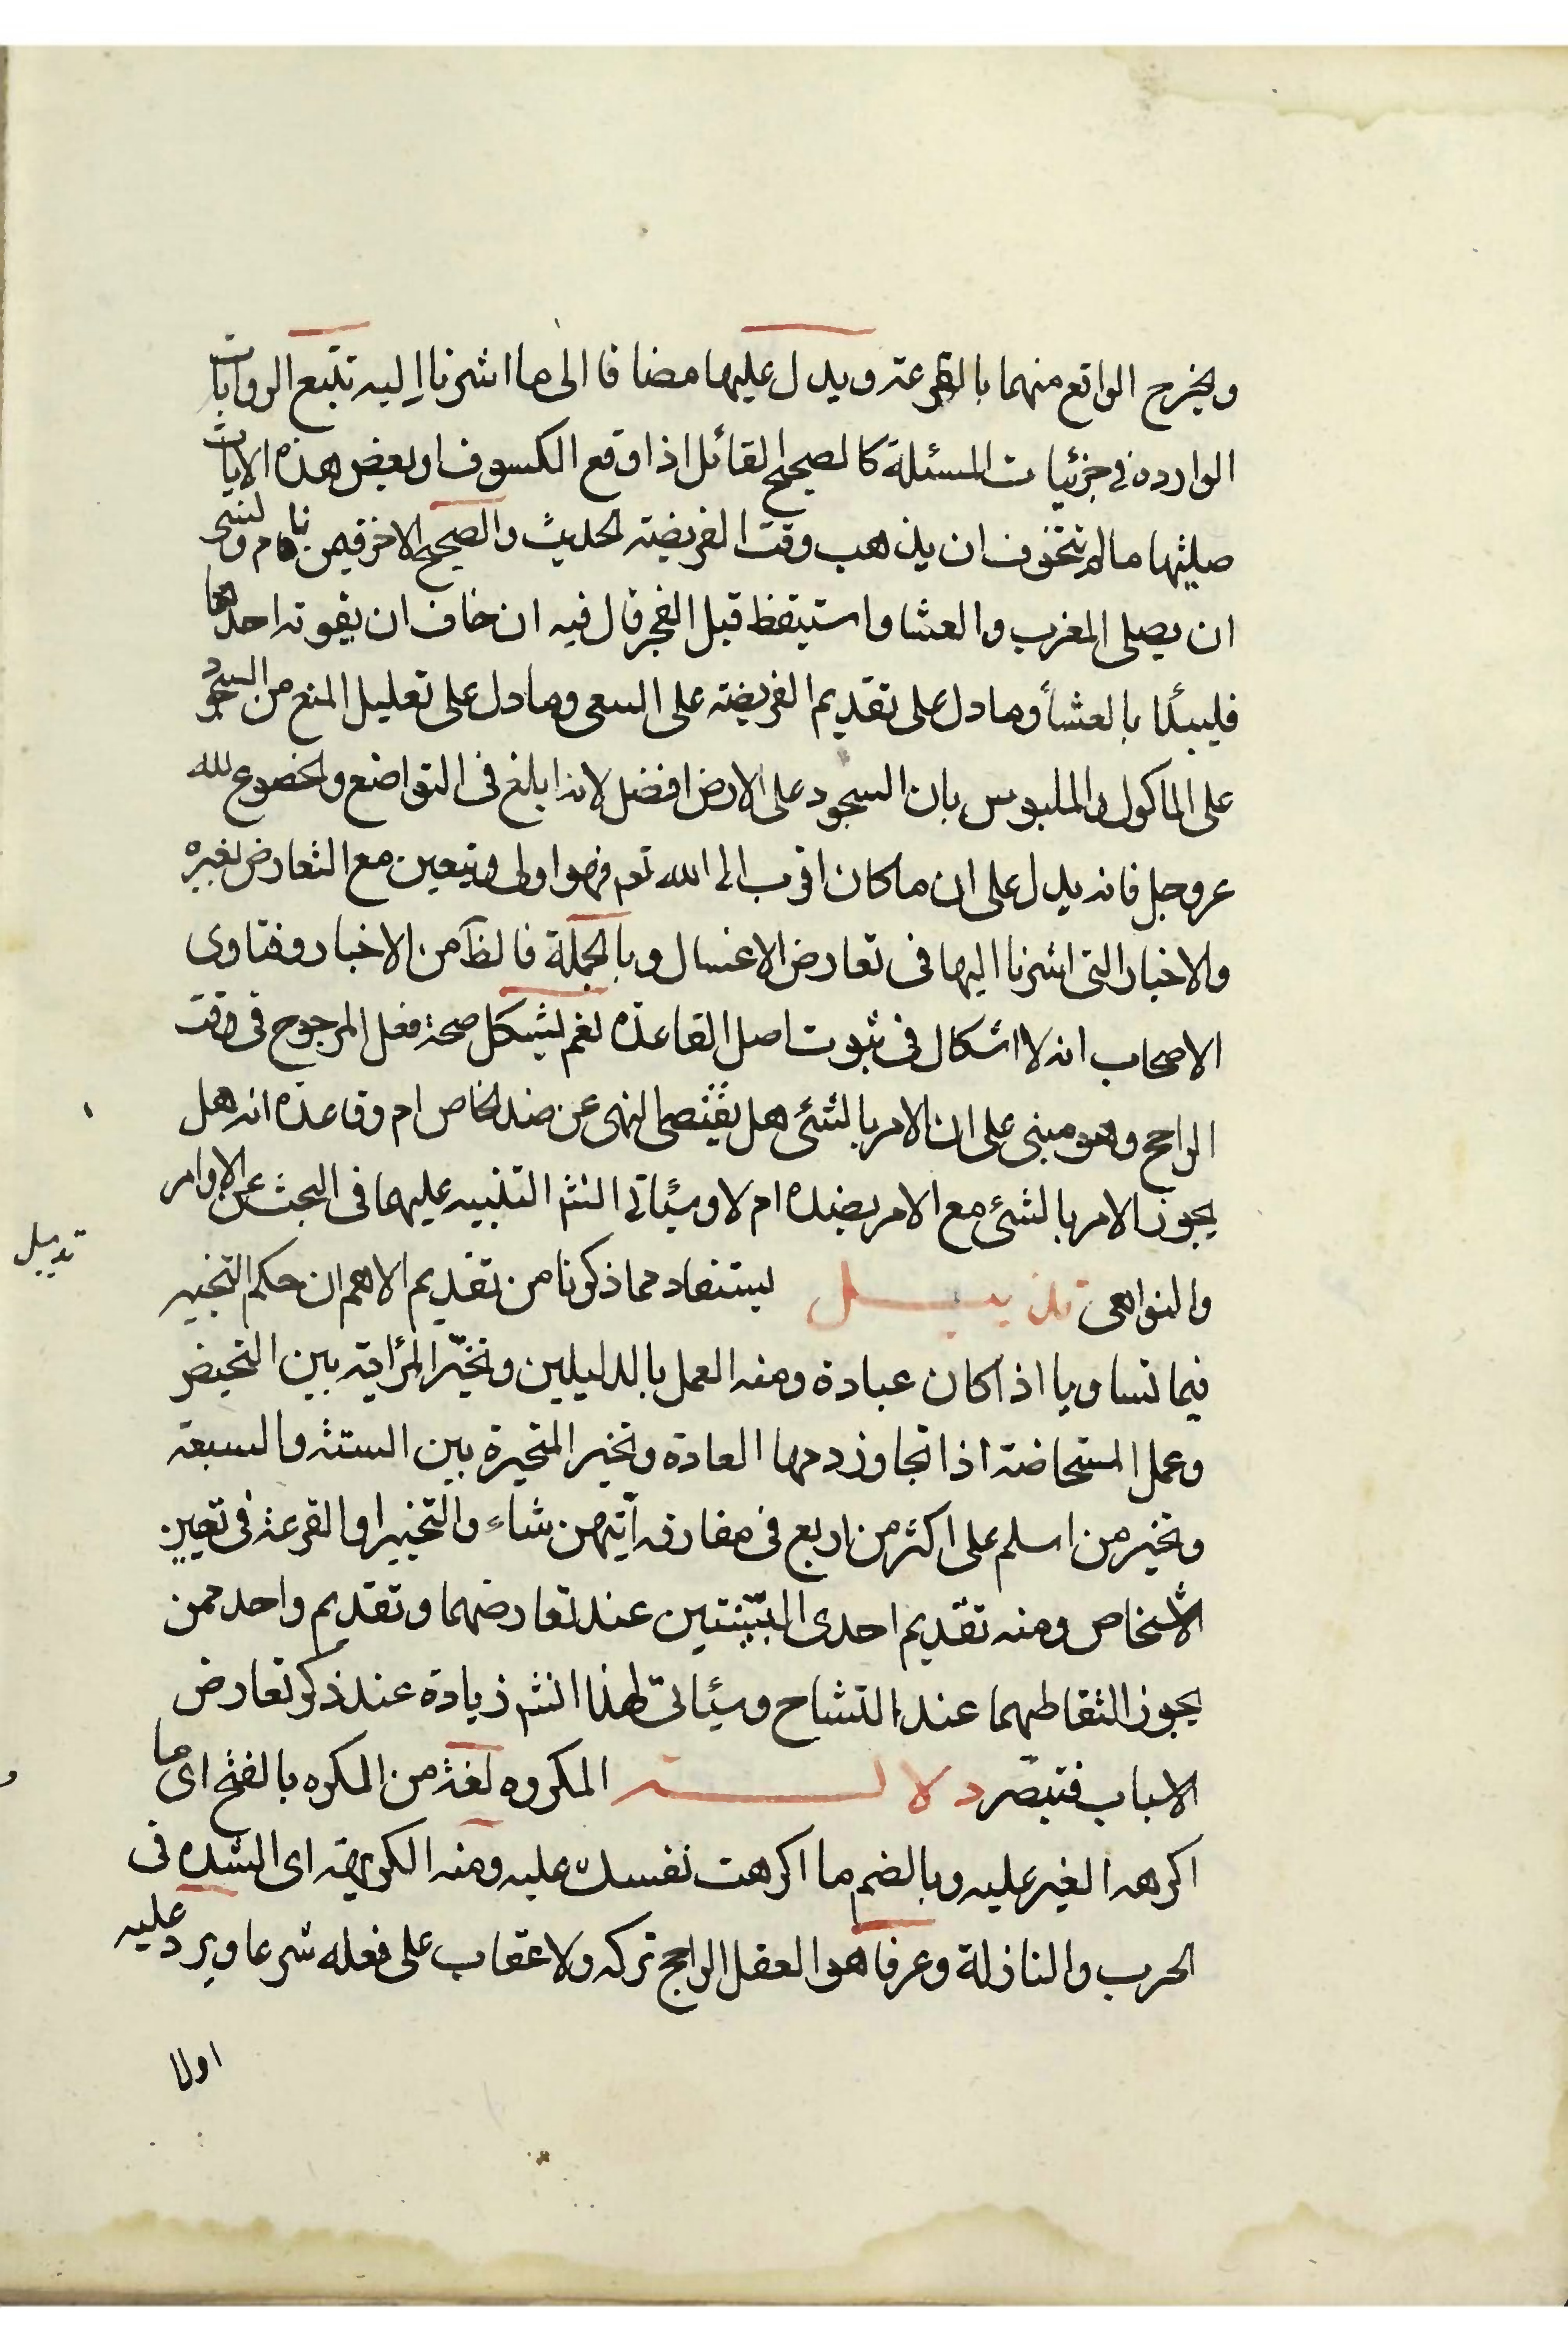 ويخرج الواقع منهما بالقرعة ويدل عليها مضافا الى ما اشرنا اليه تتبع الروايات
الوارده في جزئيات المسئلة كالصحيح القائل اذا وقع الكسوف او بعض هذه الايات
صليتها ما لم تتخوف ان يذهب وقت الفريضة الحديث والصحيح الاخر فيمن نام ونسى
ان يصلى المغرب والعشا واستيقظ قبل الفجر قال فيه ان خاف ان يفوته احدهما
فليبدا بالعشأ وما دل على تقديم الفريضة على السعى وما دل على تعليل المنع من السجود
على الماكول والملبوس بان السجود على الارض افضل لانه ابلغ فى التواضع والخضوع لله
عز وجل فانه يدل على ان ما كان اقرب الى الله تعم فهو اولى ويتعين مع التعارض لغيره
والاخبار التى اشرنا اليها فى تعارض الاغسال وبالجملة فالظ من الاخبار وفتاوى
الاصحاب انه لا اشكال فى ثبوت اصل القاعده نعم يشكل صحة فعل المرجوح فى وقت
الراجح وهو مبنى على ان الامر بالشئ هل يقتضى النهى عن ضده الخاص ام وقاعده انه هل
يجوز الامر بالشئ مع الامر بضده ام لا وسيأتى انشم التنبيه عليهما فى البحث عن الاوامر
والنواهى تذييل يستفاد مما ذكرنا من تقديم الاهم ان حكم التخيير
فيما تساويا اذا كان عبادة ومنه العمل بالدليلين وتخيّر المرأة بين التحيض
وعمل المستحاضة اذا تجاوز دمها العادة وتخير المتحيرة بين الستة والسبعة
وتخير من اسلم على اكثر من اربع فى مفارقه أيتهن شاء والتخيير او القرعة فى تعيين
الاشخاص ومنه تقديم احدى البيّنتين عند تعارضهما وتقديم واحد ممن
يجوز التقاطهما عند التشاح وسيأتى لهذا انشم زيادة عند ذكر تعارض
الاسباب فتبصّر دلالة المكروه لغة من المكره بالفتح اى ما
اكرهه الغير عليه وبالضم ما اكرهت نفسك عليه ومنه الكريهة اى الشده فى
الحرب والنازلة وعرفا هو العفل الراجح تركه ولا عقاب على فعله شرعا ويرد عليه
اولا
تذييل